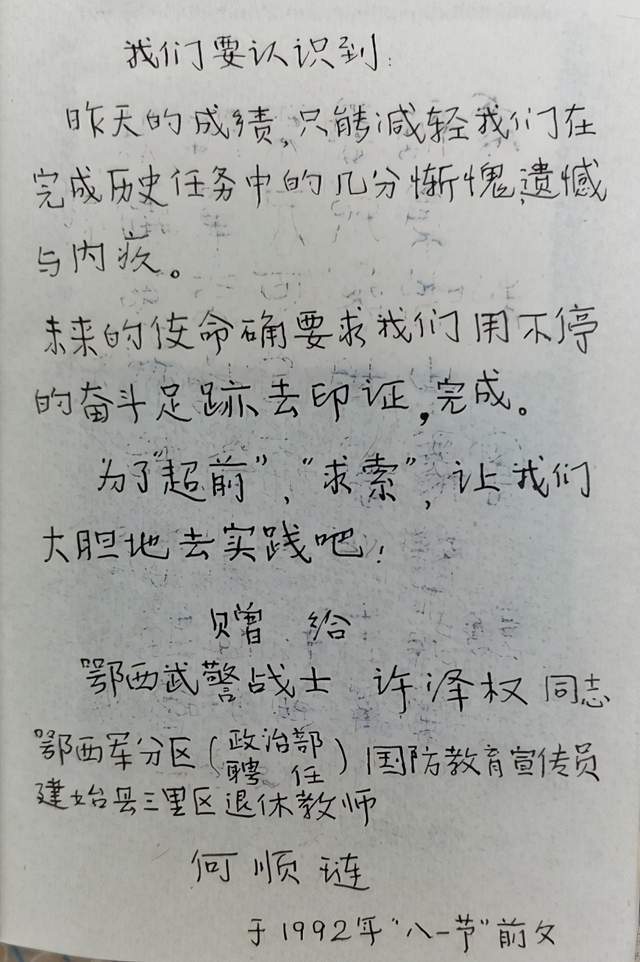 我们要认识到:
昨天的成绩,只能减轻我们在
完成历史任务中的几分惭愧,遗憾
与内疚。
未来的使命确要求我们用不停
的奋斗足跡去印证,完成。
为了"超前","求索",让我们
大胆地去实践吧!
赠 给
鄂西武警战士 许泽权 同志
鄂西军分区(政治部聘任)国防教育宣传员
建始县三里区退休教师
何顺琏
于1992年"八一节"前夕